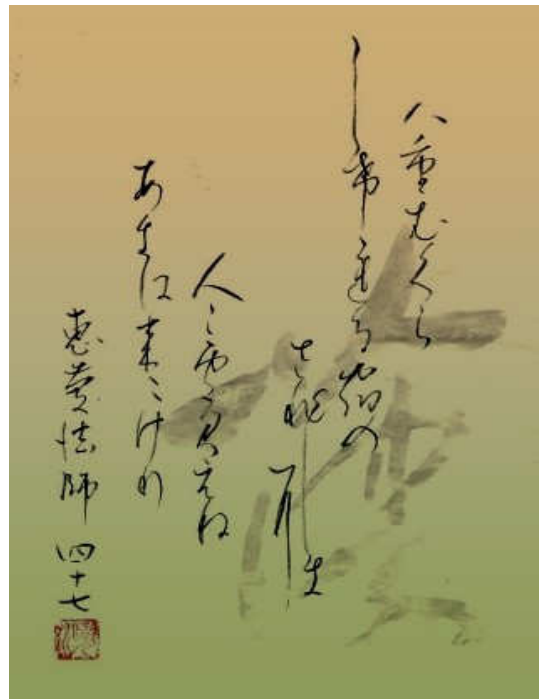 八重むくら
しけれる宿の
さひしきに
人こそ見えね
あきは来にけり
恵慶法師 四十七